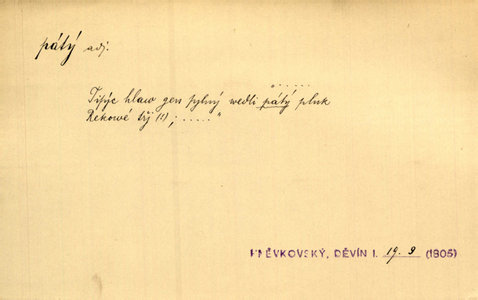 pátý adj.
„.....
Tisýc hlaw gen pylný wedli pátý pluk
Rekowé tři (!); ....."
HNĚVKOVSKÝ, DĚVÍN I. 19. 9 (1805)